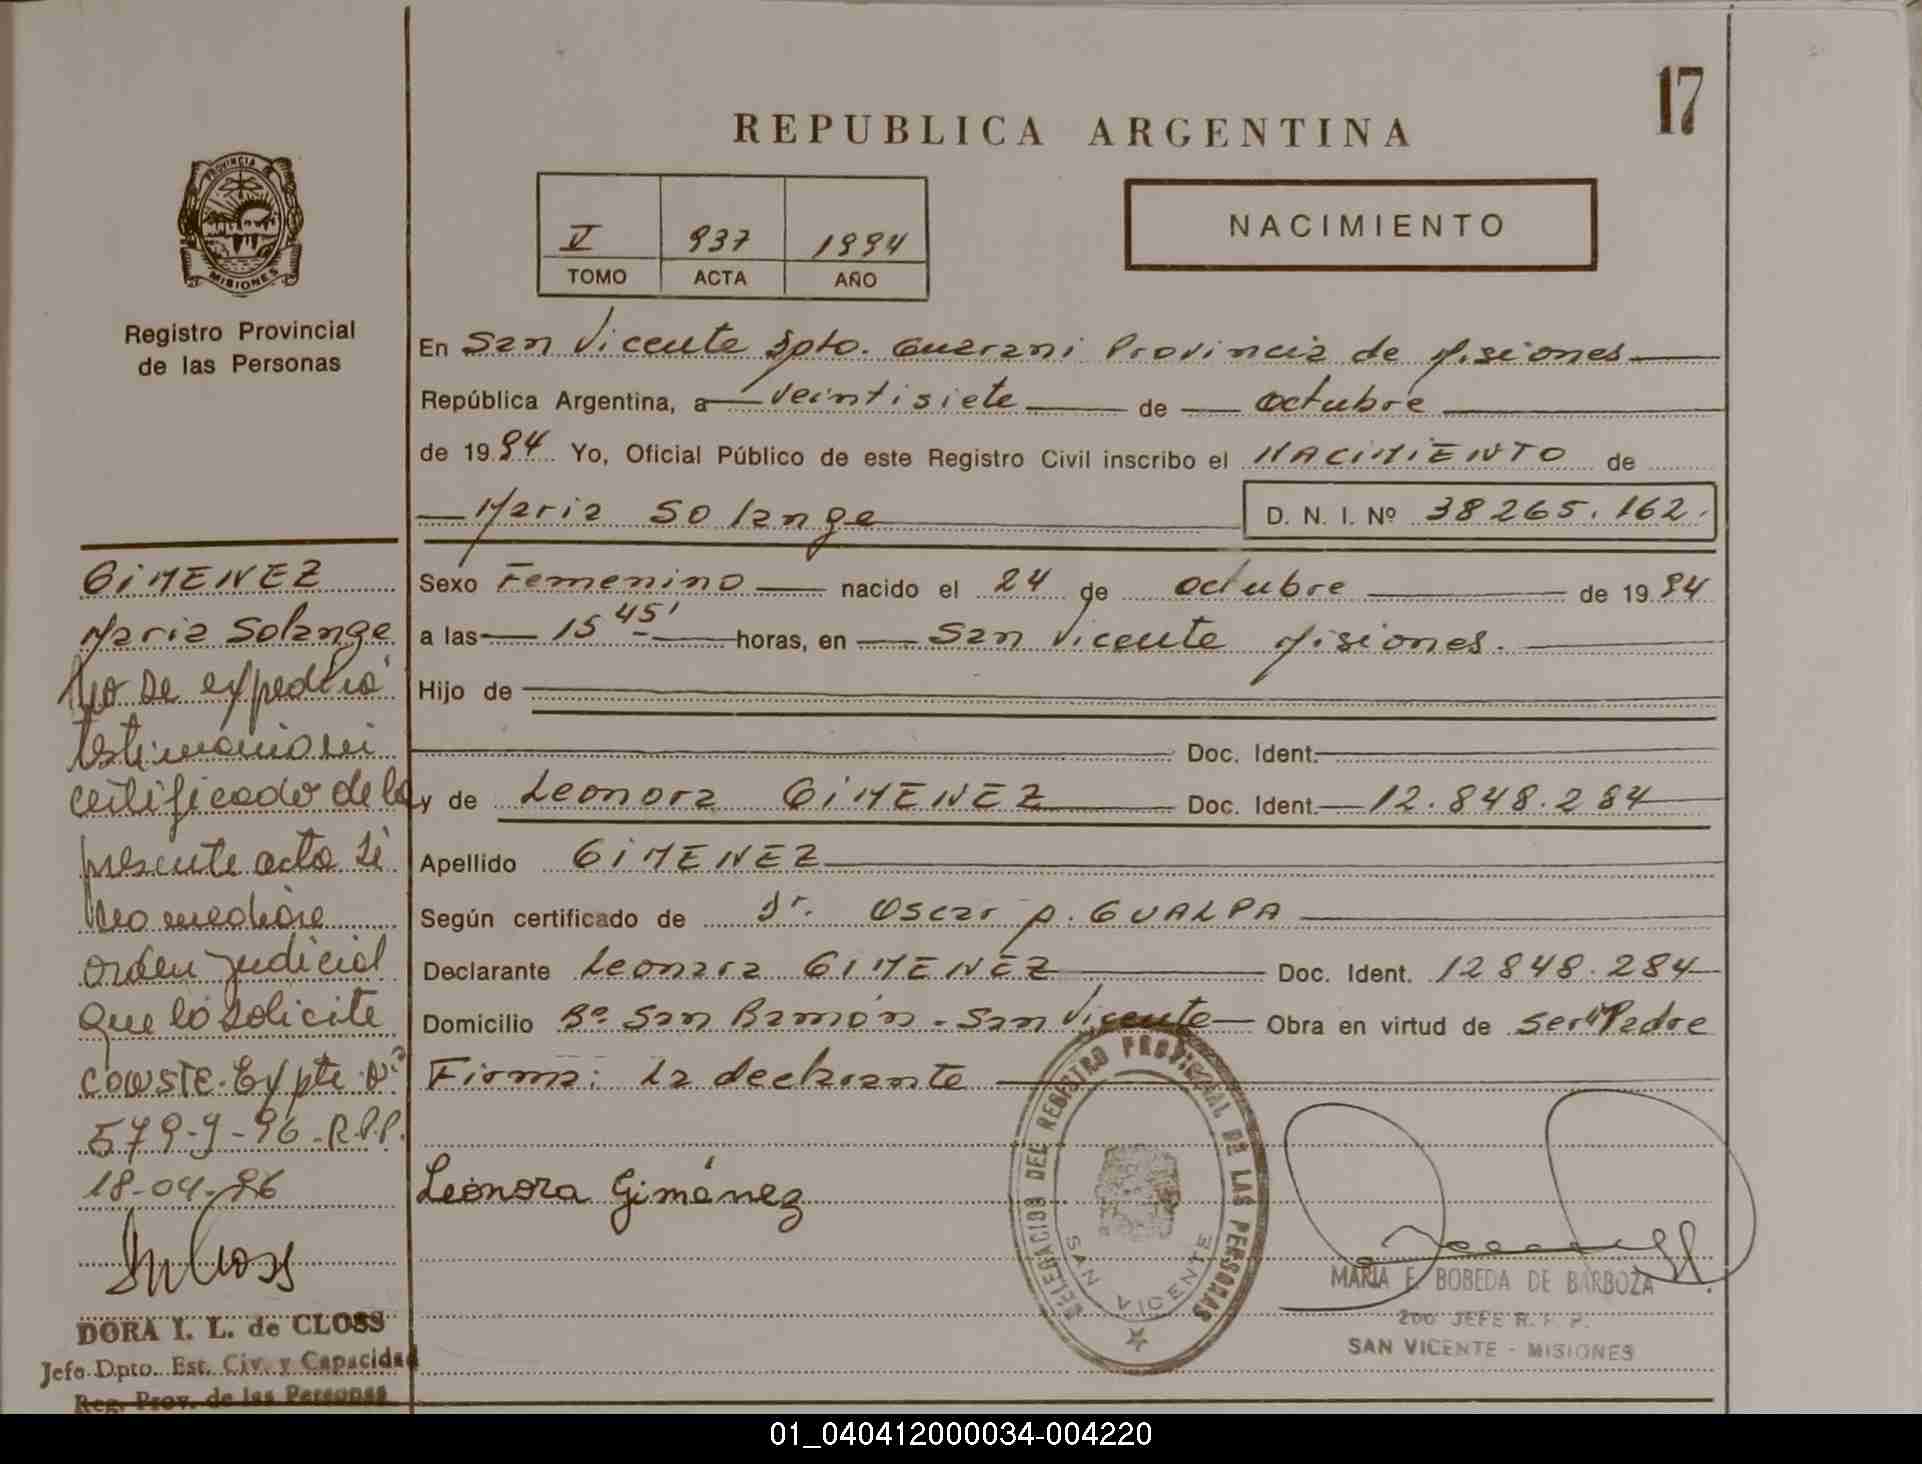 17
REPUBLICA ARGENTINA
PROVINCIA
MISIONES
Registro Provincial
de las Personas
V 937 1994
TOMO ACTA AÑO
NACIMIENTO
En San Vicente Dpto. Guarani Provincia de Misiones
República Argentina, a veintisiete de octubre
de 1994 Yo, Oficial Público de este Registro Civil inscribo el NACIMIENTO de
Maria Solange D. N. I. Nº 38265.162.
Sexo Femenino nacido el 24 de octubre de 1994
a las 15 45' horas, en San Vicente Misiones.
Hijo de
Doc. Ident.
y de Leonora GiMENEZ Doc. Ident. 12.848.284
Apellido GiMENEZ
Según certificado de Dr. Oscar A. GUALPA
Declarante Leonora GIMENEZ Doc. Ident. 12848.284
Domicilio Bº San Ramón - San Vicente Obra en virtud de ser Madre
Firma: La declarante
Leonora Giménez
GiMENEZ
Maria Solange
No se expedirá
testimonio ni
certificado de la
presente acta si
no mediare
orden judicial
que lo solicite
CONSTE. Expte Nº
579-G-96-R.P.P.
18-04-96
DORA I. L. de CLOSS
Jefe Dpto. Est. Civ. y Capacidad
Reg. Prov. de las Personas
DELEGACION DEL REGISTRO PROVINCIAL DE LAS PERSONAS
SAN VICENTE
MARIA E. BOBEDA DE BARBOZA
2DO JEFE R. P. P.
SAN VICENTE - MISIONES
01_040412000034-004220